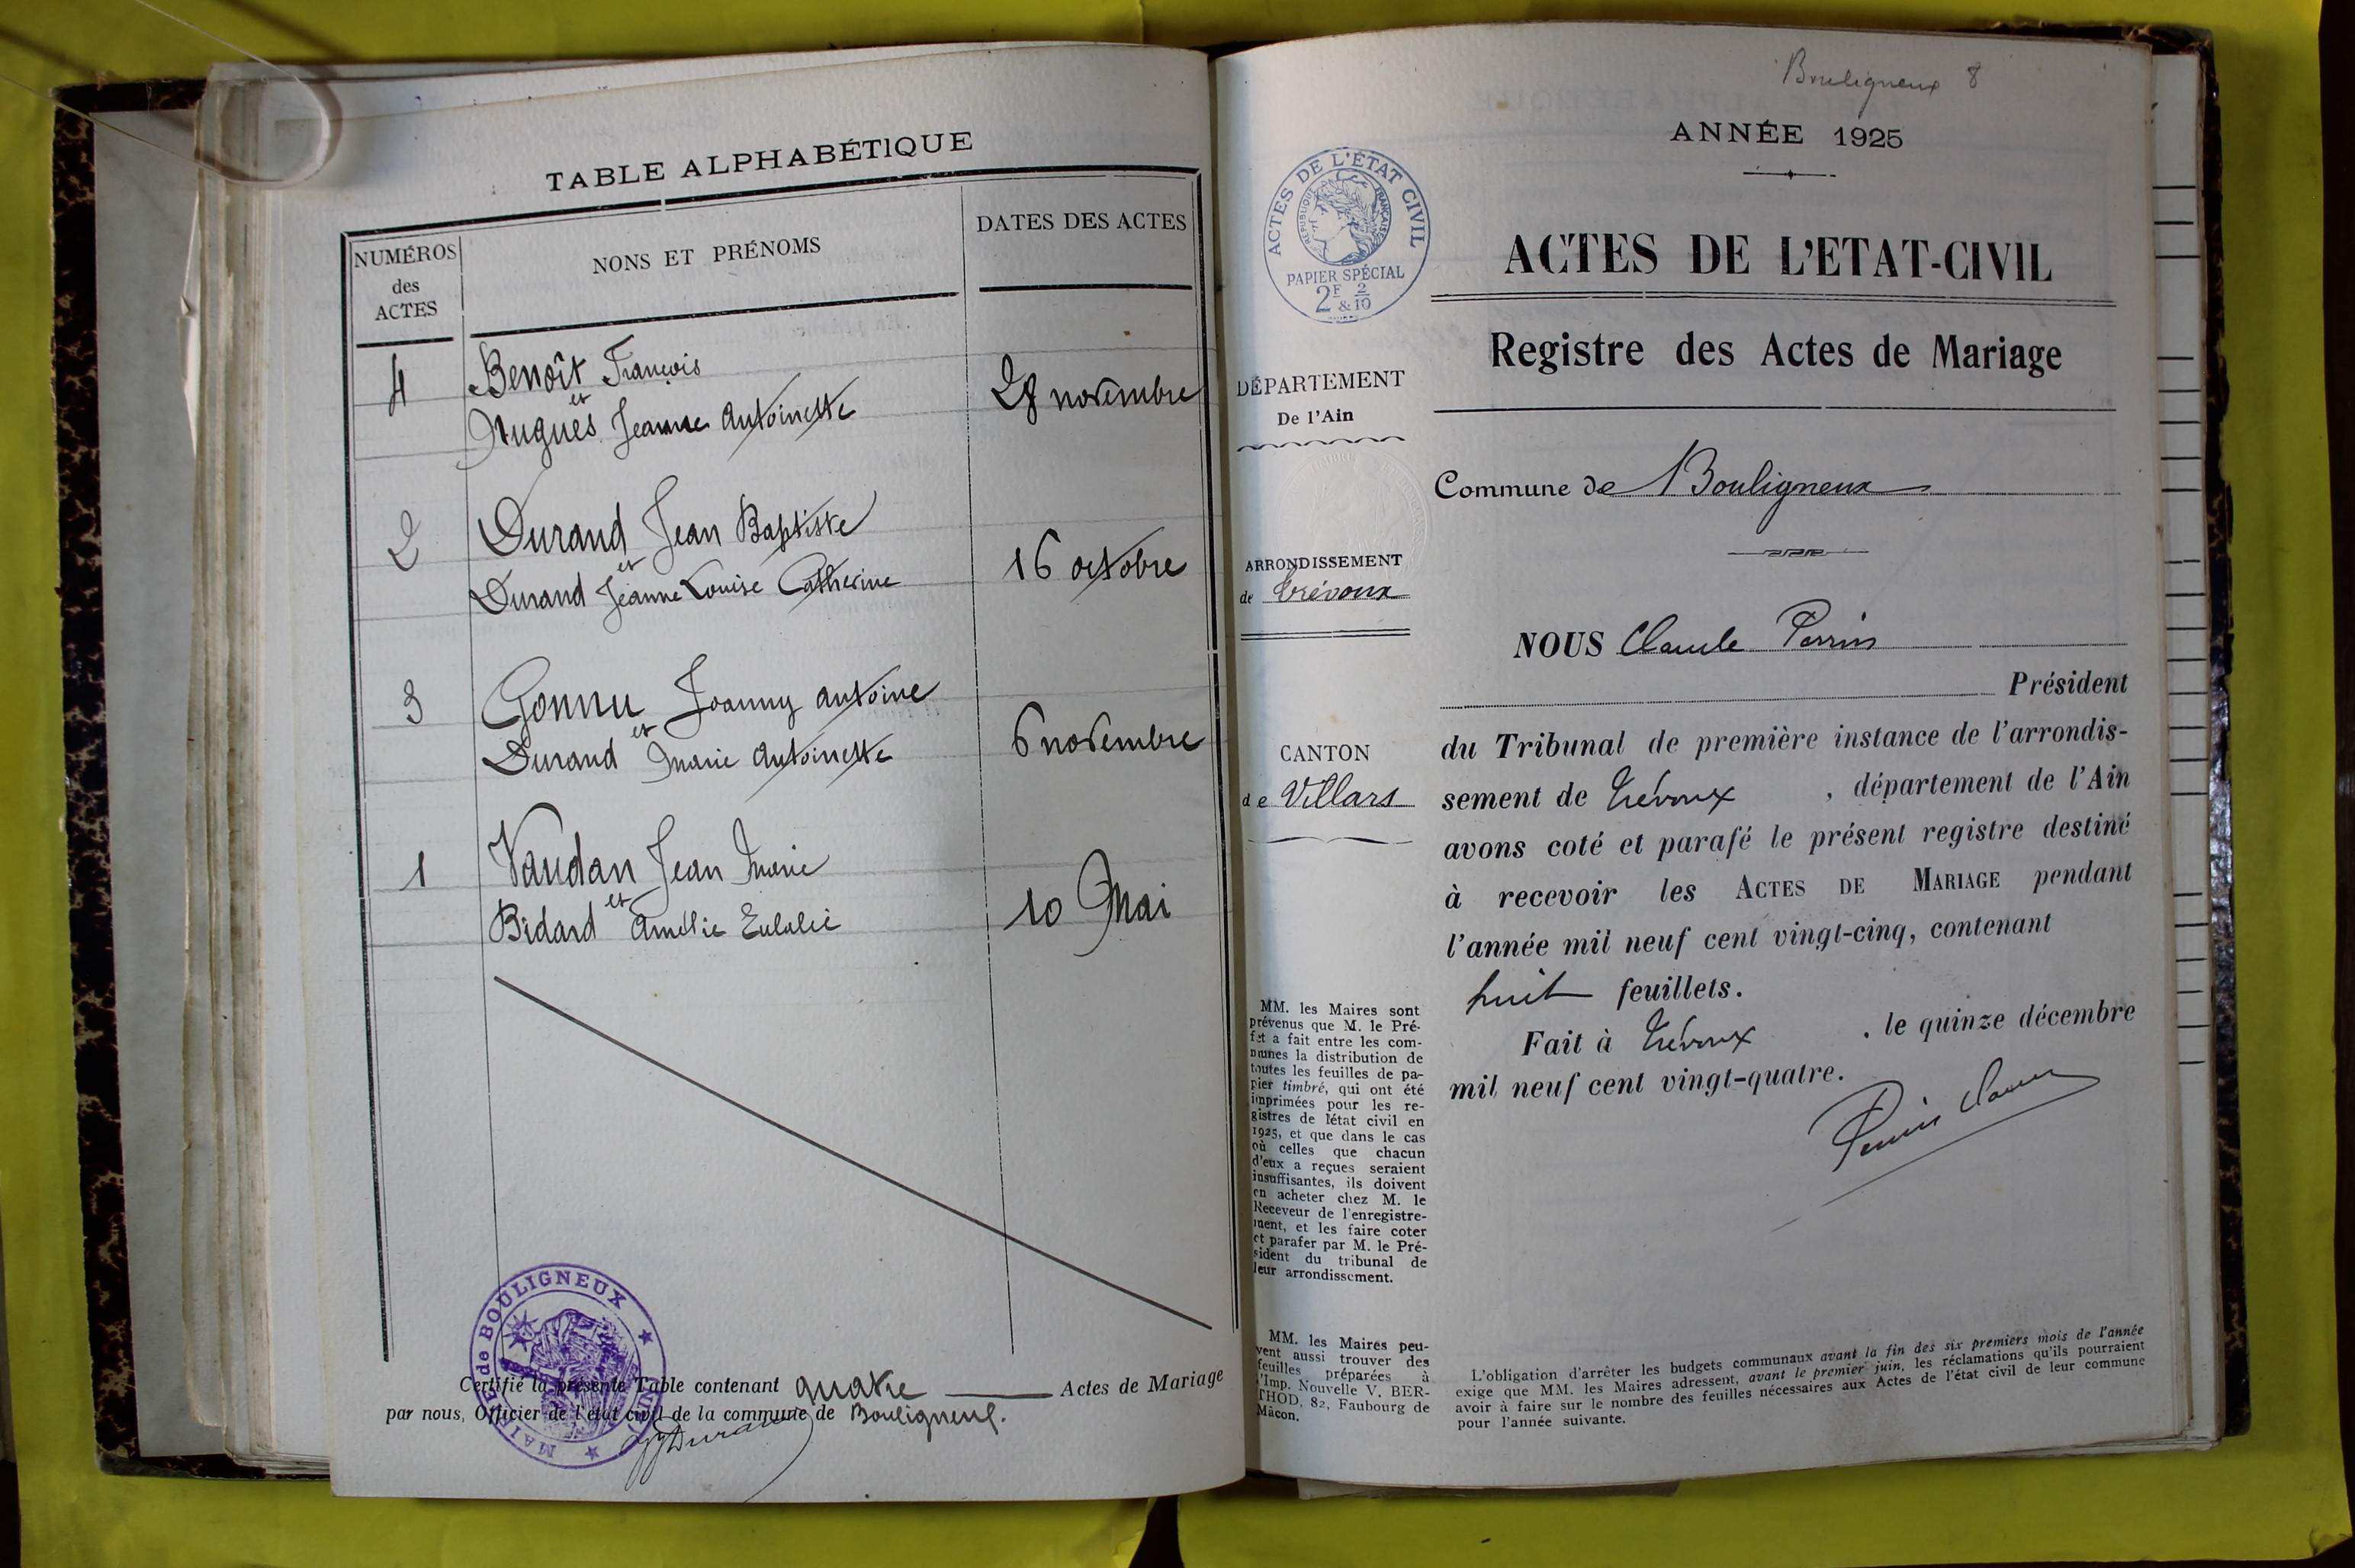 TABLE ALPHABÉTIQUE
NUMÉROS
des
ACTES
NONS ET PRÉNOMS
DATES DES ACTES
4
Benoît François
et
Hugues Jeanne Antoinette
28 novembre
2
Durand Jean Baptiste
et
Durand Jeanne Louise Catherine
16 octobre
3
Gonnu Joanny Antoine
et
Durand Marie Antoinette
6 novembre
1
Vaudan Jean Marie
et
Bidard Amélie Eulalie
10 Mai
MAIRIE de BOULIGNEUX
AIN
Certifié la présente Table contenant quatre Actes de Mariage
par nous, Officier de l'état civil de la commune de Bouligneux.
Durand
Bouligneux 8
ANNÉE 1925
ACTES DE L'ÉTAT CIVIL
RÉPUBLIQUE FRANÇAISE
PAPIER SPÉCIAL
2F & 2/10
ACTES DE L'ETAT-CIVIL
Registre des Actes de Mariage
DÉPARTEMENT
De l'Ain
Commune de Bouligneux
ARRONDISSEMENT
de Trévoux
CANTON
de Villars
NOUS Claude Perrin
Président
du Tribunal de première instance de l'arrondis-
sement de Trévoux, département de l'Ain
avons coté et parafé le présent registre destiné
à recevoir les ACTES DE MARIAGE pendant
l'année mil neuf cent vingt-cinq, contenant
huit feuillets.
Fait à Trévoux, le quinze décembre
mil neuf cent vingt-quatre.
Perrin Claude
MM. les Maires sont
prévenus que M. le Pré-
fet a fait entre les com-
munes la distribution de
toutes les feuilles de pa-
pier timbré, qui ont été
imprimées pour les re-
gistres de l'état civil en
1925, et que dans le cas
où celles que chacun
d'eux a reçues seraient
insuffisantes, ils doivent
en acheter chez M. le
Receveur de l'enregistre-
ment, et les faire coter
et parafer par M. le Pré-
sident du tribunal de
leur arrondissement.
MM. les Maires peu-
vent aussi trouver des
feuilles préparées à
l'Imp. Nouvelle V. BER-
THOD, 82, Faubourg de
Mâcon.
L'obligation d'arrêter les budgets communaux avant la fin des six premiers mois de l'année
exige que MM. les Maires adressent, avant le premier juin, les réclamations qu'ils pourraient
avoir à faire sur le nombre des feuilles nécessaires aux Actes de l'état civil de leur commune
pour l'année suivante.